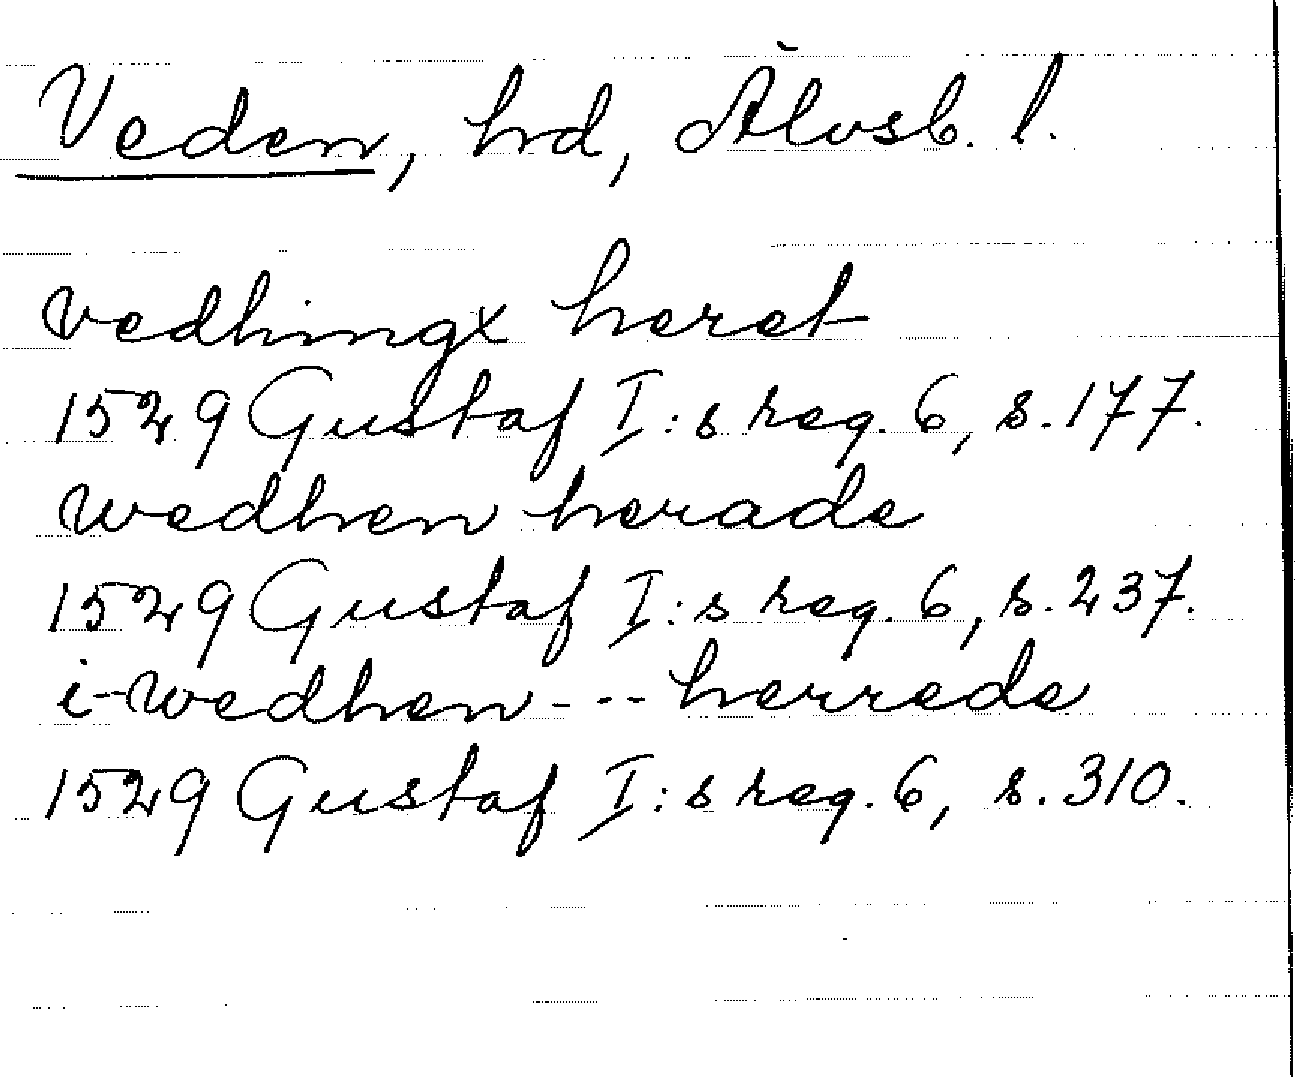 Veden, hrd, Älvsb. l.
vedhingx heret
1529 Gustaf I:s reg. 6, s. 177.
wedhen herade
1529 Gustaf I:s reg. 6, s. 237.
i-wedhen --- herrede
1529 Gustaf I:s reg. 6, s. 310.